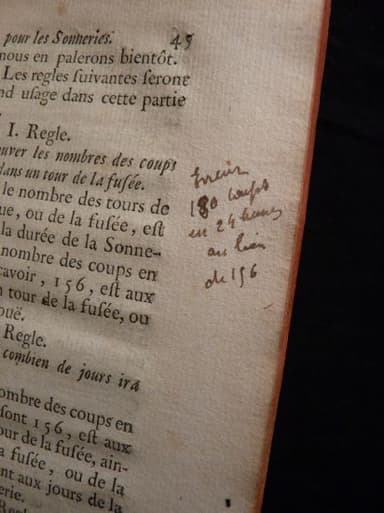 pour les Sonneries. 45
nous en palerons bientôt.
Les regles suivantes seront
nd usage dans cette partie
I. Regle.
uver les nombres des coups
dans un tour de la fusée.
le nombre des tours de
ue, ou de la fusée, est
la durée de la Sonne-
nombre des coups en
avoir, 156, est aux
n tour de la fusée, ou
ouë.
Regle.
combien de jours ira
ombre des coups en
sont 156, est aux
our de la fusée, ain-
a fusée, ou de la
nt aux jours de la
erie.
Erreur
180 coups
en 24 heures
au lieu
de 156